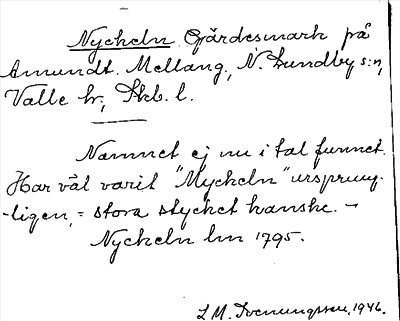 Nyckeln. Gärdesmark på
Amundt. Mellang., N. Lundby s:n,
Valle hr, Skb. l.
Namnet ej nu i tal funnet.
Har väl varit "Myckeln" ursprung-
-ligen, = stora stycket kanske. -
Nyckeln lm 1795.
L M. Svenungsson, 1946.